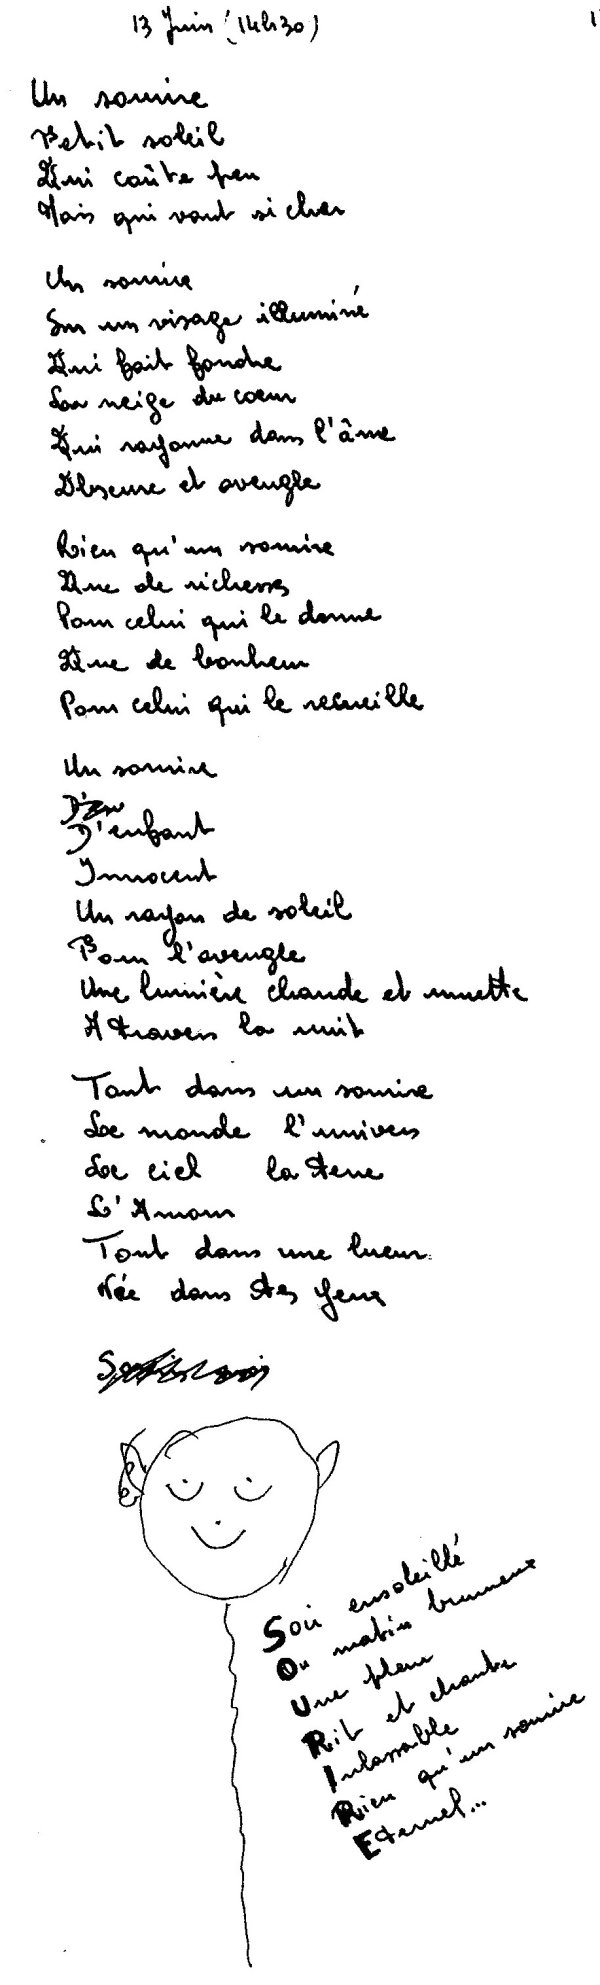 13 Juin (14h30)
Un sourire
Petit soleil
Qui coûte peu
Mais qui vaut si cher
Un sourire
Sur un visage illuminé
Qui fait fondre
La neige du coeur
Qui rayonne dans l'âme
Obscure et aveugle
Rien qu'un sourire
Que de richesses
Pour celui qui le donne
Que de bonheur
Pour celui qui le recueille
Un sourire
D'enfant
Innocent
Un rayon de soleil
Pour l'aveugle
Une lumière chaude et muette
A travers la nuit
Tout dans un sourire
Le monde l'univers
Le ciel la terre
L'Amour
Tout dans une lueur
Née dans tes yeux
Soir ensoleillé
Ou matin brumeux
Une fleur
Rit et chante
Inlassable
Rien qu'un sourire
Eternel...